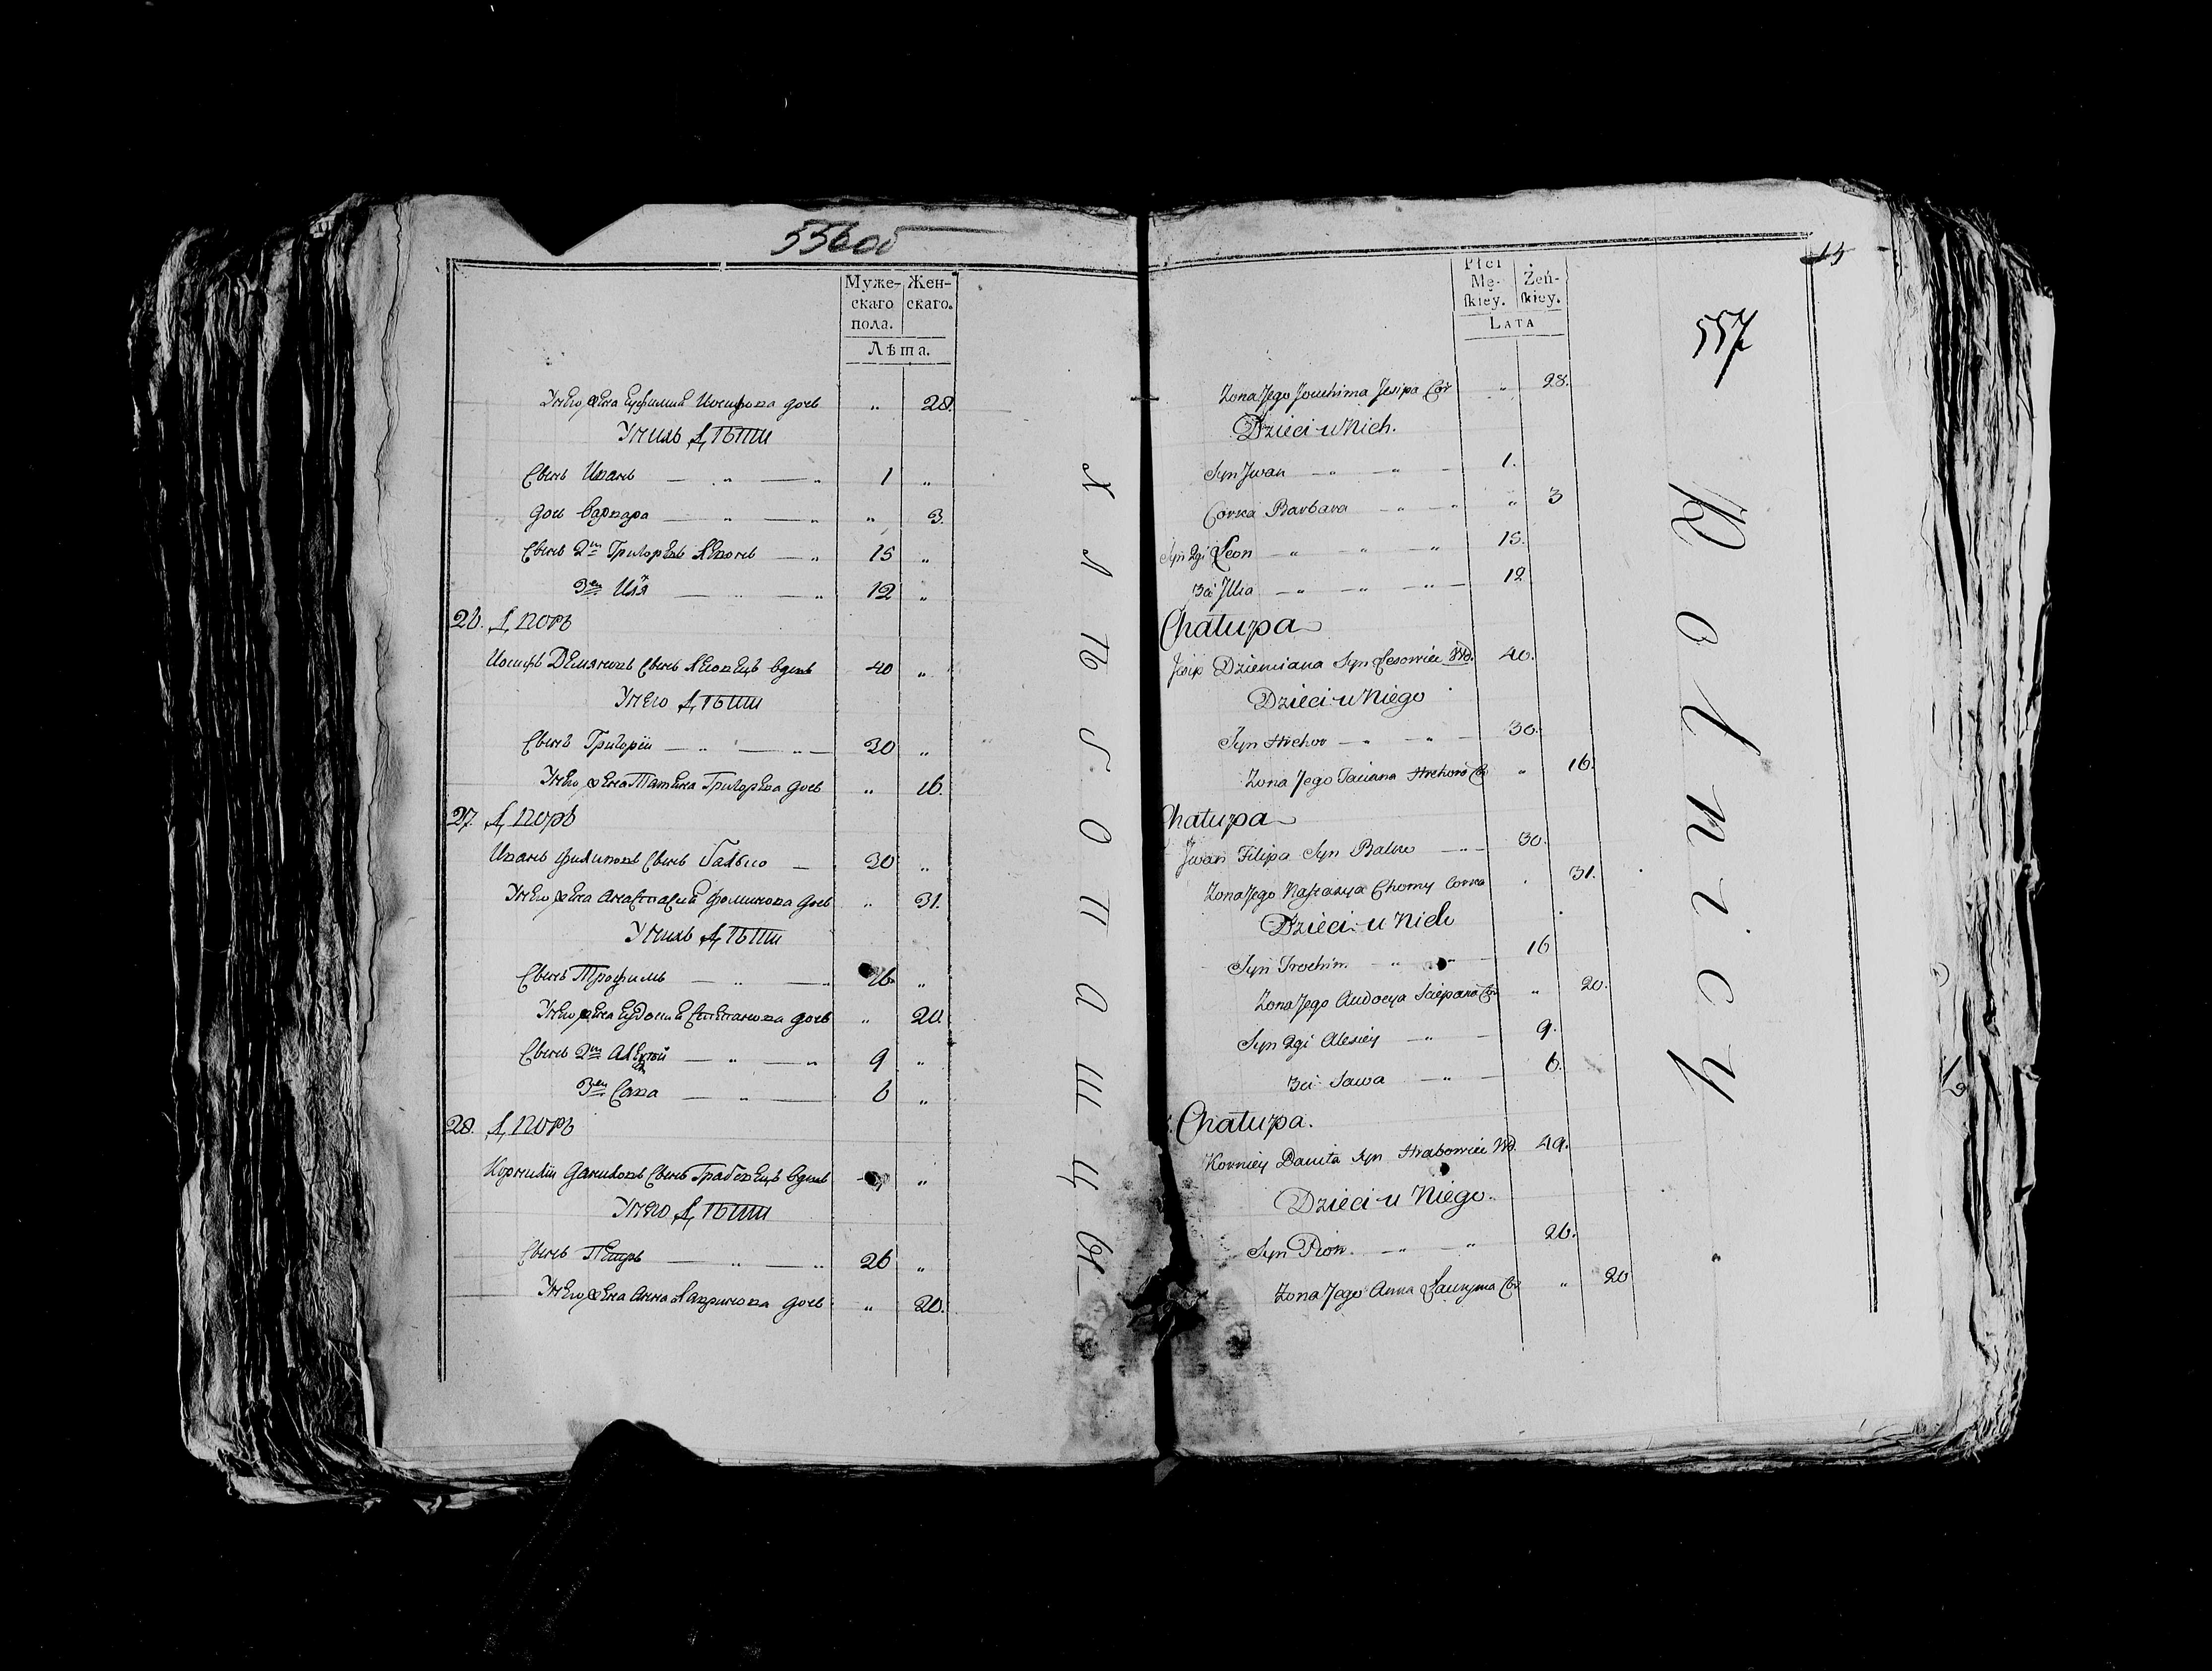 556об
Муже-скаго пола. Жен-скаго.
Лѣта.
У него жена Еуфимия Иосифова дочь „ 28.
У нихъ Дѣти
Сынъ Иванъ 1 „
дочь Варвара „ 3.
Сынъ 2й Григорьевъ Левонъ 15 „
3й Илья 12 „
26. Дворъ
Иосифъ Демяновъ Сынъ Лесовецъ вдовъ 40 „
У него Дѣти
Сынъ Григорій 30 „
У него жена Татьяна Григорьева дочь „ 16.
27. Дворъ
Иванъ Филиповъ Сынъ 30 „
У него жена Анастасия Фоминова дочь „ 31.
У нихъ Дѣти
Сынъ Трофимъ 16. „
У него жена Еудокия Степанова дочь „ 20.
Сынъ 2й Алексѣй 9 „
3й Сава 6 „
28. Дворъ
Корнилій Даниловъ Сынъ Грабовецъ вдовъ „
У него Дѣти
Сынъ Петръ 26 „
У него жена Анна Лавринова дочь „ 20.
Хлѣбопашцы
15
557
Płci Mę-ſkiey. Żeń-ſkiey.
LATA
Żona Jego Jouchima Jesipa Cór „ 28.
Dzieci u Nich.
Syn Jwan 1.
Córka Barbara „ 3
Syn 2gi Leon 15.
3ci Jllia 12
Chałupa
Jesip Dziemiana Syn Lesowiec Wd. 40.
Dzieci u Niego
Syn Hrehor 30.
Żona Jego Taciana Hrehora Có „ 16.
Chałupa
Jwan Filipa Syn 30.
Żona Jego Nastazya Chomy Córka „ 31.
Dzieci u Nich
Syn Trochim 16
Żona Jego Audocya Sciepana Cór „ 20.
Syn 2gi Alexiey 9.
3ci Sawa 6.
Chałupa.
Korniey Daniła Syn Hrabowiec Wd. 49.
Dzieci u Niego.
Syn Piotr 26.
Żona Jego Anna Ławryna Cór „ 20
Rolnicy